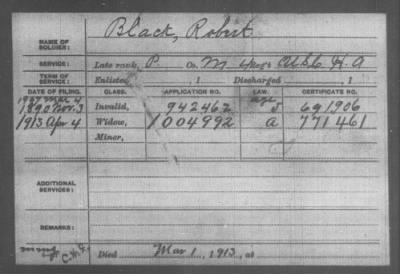 NAME OF SOLDIER: Black, Robert
SERVICE: Late rank, P. Co. M, 4 Reg't H. A
TERM OF SERVICE: Enlisted , 1 Discharged , 1
DATE OF FILING. CLASS. APPLICATION NO. LAW. CERTIFICATE NO.
1907 Mar 4
1890 Nov. 3 Invalid, 942462 J 691906
1913 Apr 4 Widow, 1004992 a 771461
Minor,
ADDITIONAL SERVICES:
REMARKS:
C.W.F. Died Mar 1, 1913, at